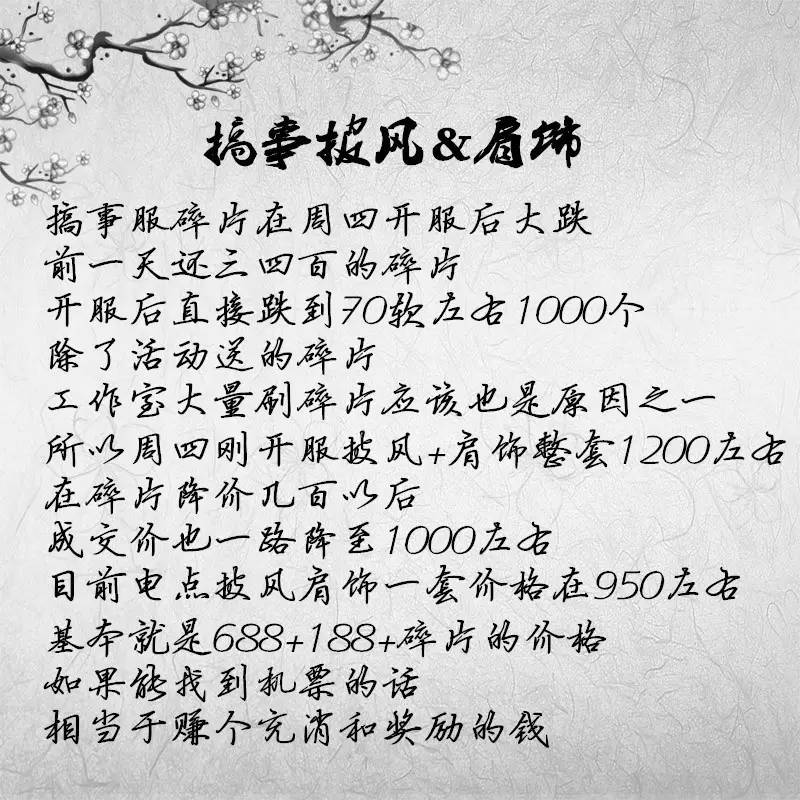 搞事披风&肩饰
搞事服碎片在周四开服后大跌
前一天还三四百的碎片
开服后直接跌到70软左右1000个
除了活动送的碎片
工作室大量刷碎片应该也是原因之一
所以周四刚开服披风+肩饰整套1200左右
在碎片降价几百以后
成交价也一路降至1000左右
目前电点披风肩饰一套价格在950左右
基本就是688+188+碎片的价格
如果能找到机票的话
相当于赚个充消和奖励的钱